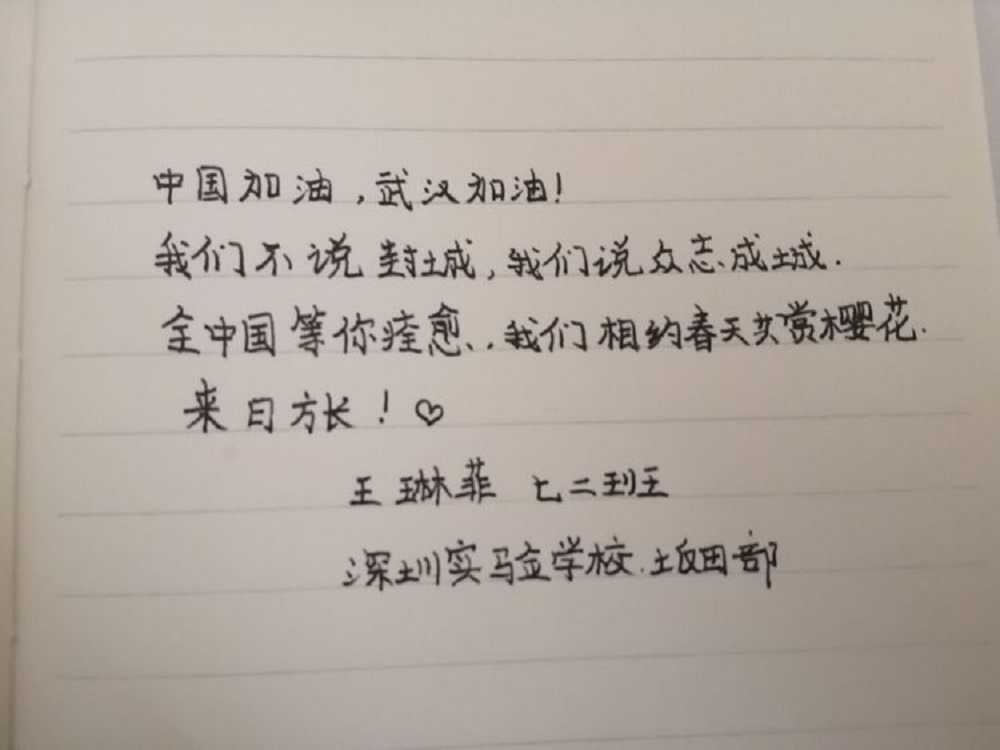 中国加油，武汉加油！
我们不说封城，我们说众志成城.
全中国等你痊愈..我们相约春天共赏樱花.
来日方长！♡
王琳菲 七二班
深圳实验学校.坂田部